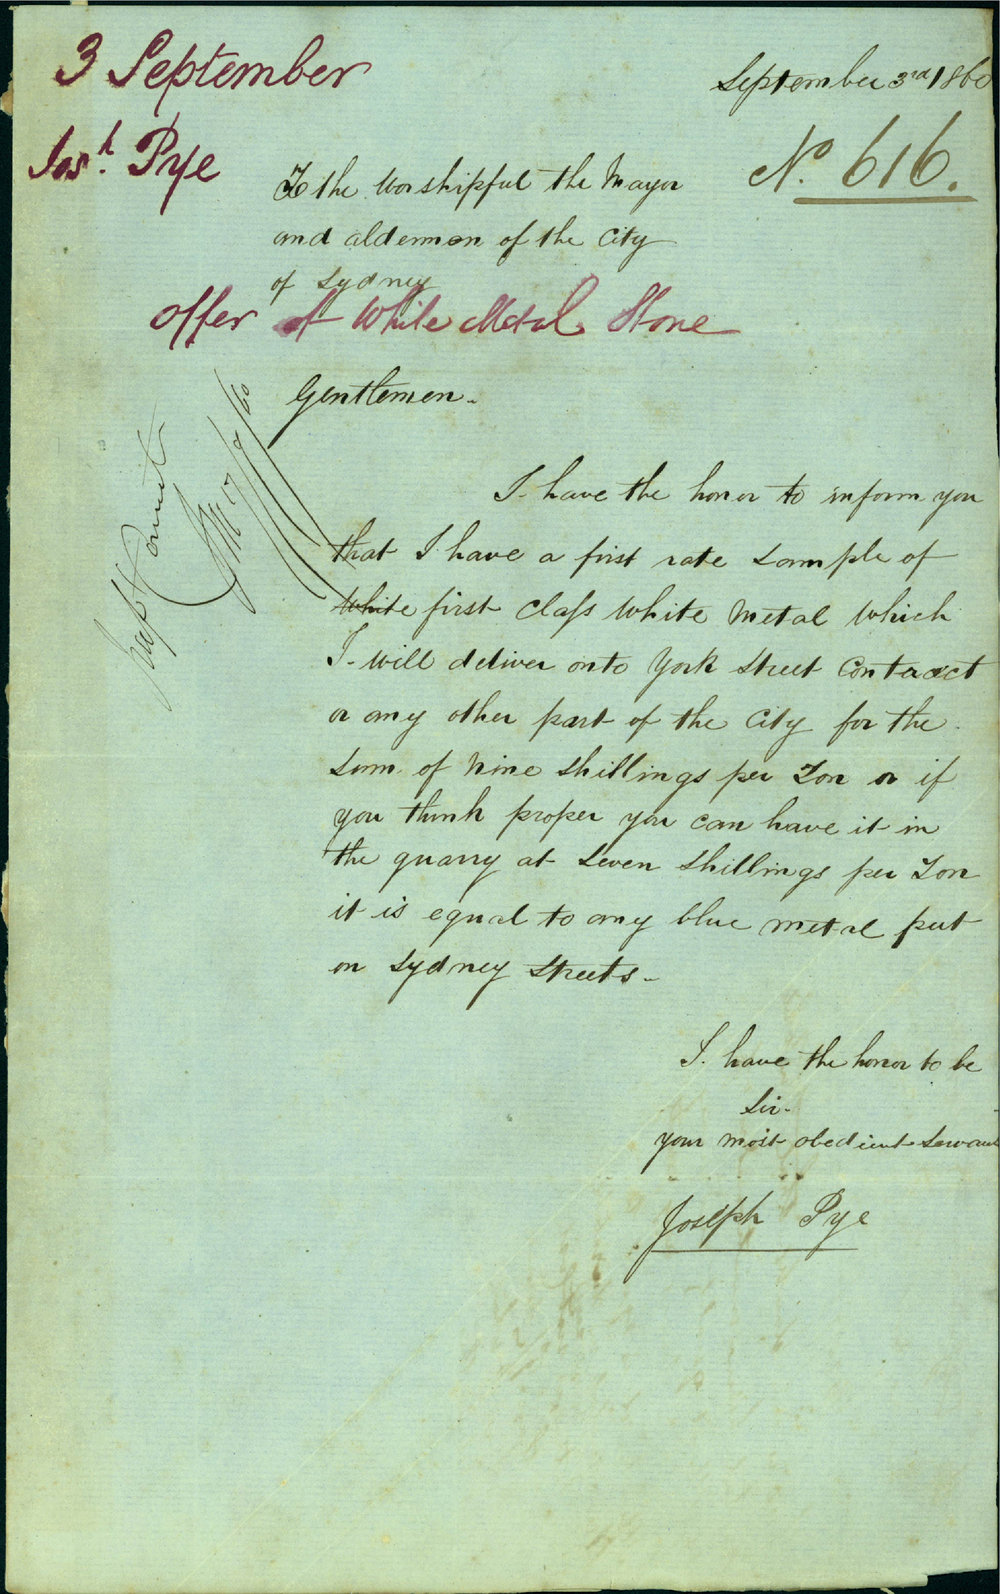 3 September
September 3rd 1860
Josh. Pye
No. 616.
To the Worshipful the Mayor
and aldermen of the City
of Sydney
offer of White Metal Stone
Gentlemen.
I have the honor to inform you
that I have a first rate sample of
white first class White Metal Which
I will deliver onto York Street Contract
or any other part of the City for the
sum of Nine Shillings per Ton or if
you think proper you can have it in
the quarry at Seven Shillings per Ton
it is equal to any blue metal put
on Sydney Streets.
I have the honor to be
Sir.
your most obedient Servant
Joseph Pye